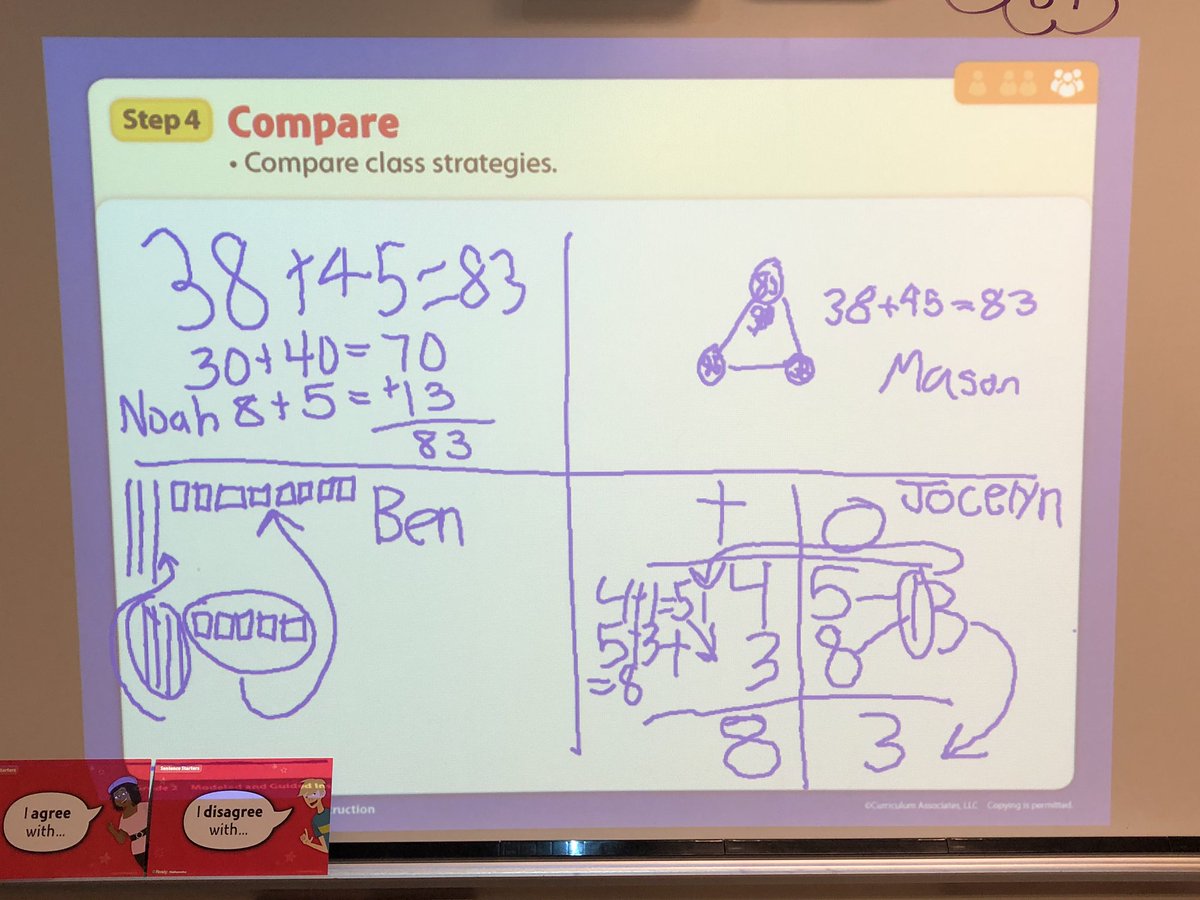 Step 4 Compare
• Compare class strategies.
38+45=83
30+40=70
Noah 8+5=+13
83
38+45=83
Mason
Ben
Jocelyn
+ 0
4+1=5 1 4 5 13
5+3 + 3 8
=8
8 3
Sentence Starters
I agree
with...
Sentence Starters
I disagree
with...
Modeled and Guided
ruction
©Curriculum Associates, LLC Copying is permitted.